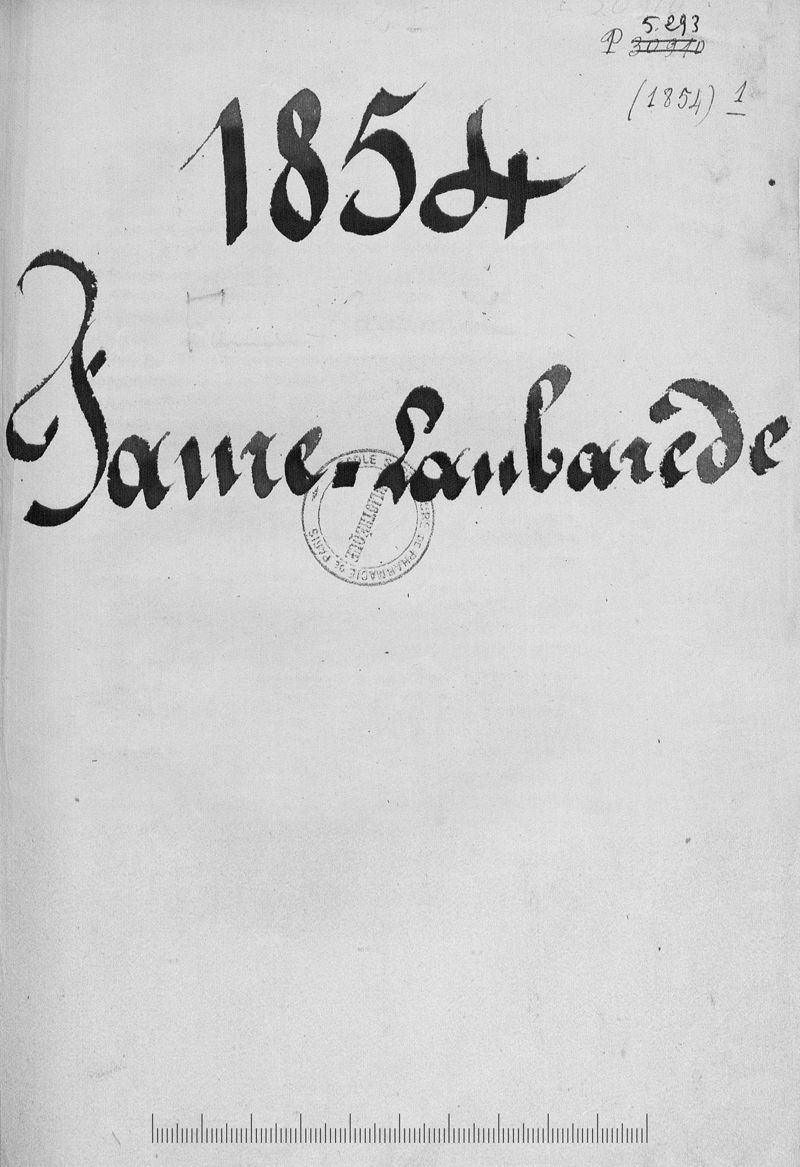 P 5.293
30910
(1854) 1
1854
Faure-Laubarède
ÉCOLE SUPÉRIEURE DE PHARMACIE DE PARIS
BIBLIOTHÈQUE